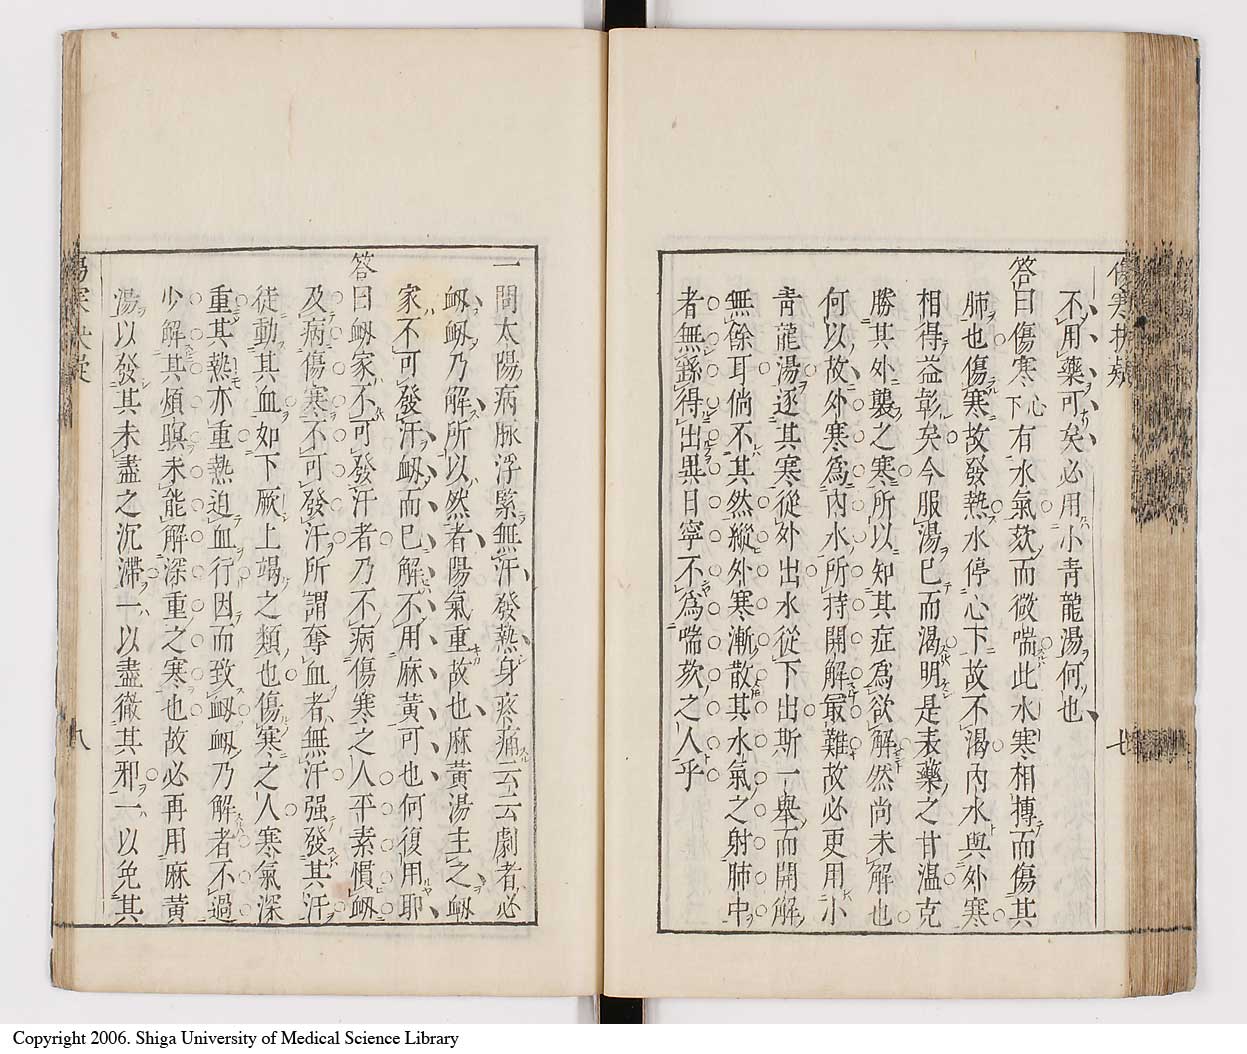 傷寒抉疑
七
不用藥可矣必用小青龍湯何也
答曰傷寒心下有水氣欬而微喘此水寒相搏而傷其
肺也傷寒故發熱水停心下故不渴內水與外寒
相得益彰矣今服湯已而渴明是表藥之甘溫克
勝其外襲之寒所以知其症為欲解然尚未解也
何以故外寒為內水所持開解最難故必更用小
青龍湯逐其寒從外出水從下出斯一舉而開解
無餘耳倘不其然縱外寒漸散其水氣之射肺中
者無繇得出異日寧不為喘欬之人乎
一問太陽病脉浮緊無汗發熱身疼痛云云劇者必
衂衂乃解所以然者陽氣重故也麻黃湯主之衂
家不可發汗衂而已解不用麻黃可也何復用耶
答曰衂家不可發汗者乃不病傷寒之人平素慣衂
及病傷寒不可發汗所謂奪血者無汗强發其汗
徒動其血如下厥上竭之類也傷寒之人寒氣深
重其熱亦重熱迫血行因而致衂衂乃解者不過
少解其煩瞑未能解深重之寒也故必再用麻黃
湯以發其未盡之沉滯一以盡徹其邪一以免其
傷寒抉疑
八
Copyright 2006. Shiga University of Medical Science Library